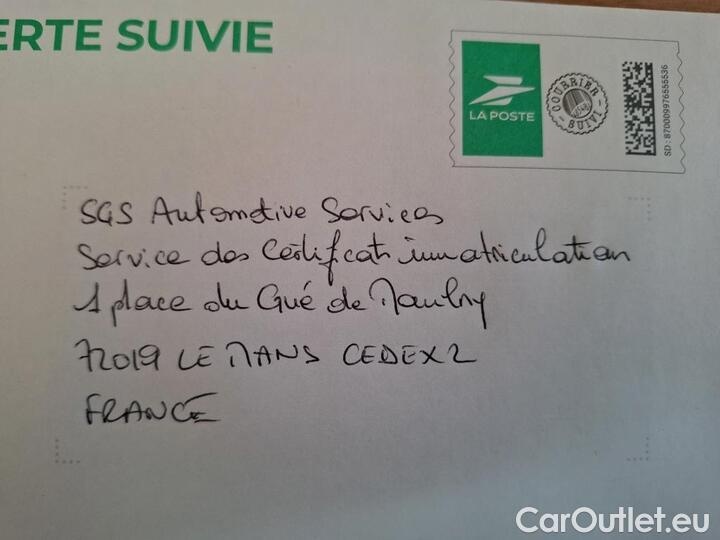 ERTE SUIVIE
LA POSTE
COURRIER SUIVI
SD : 870009976555536
SGS Automotive Services
Service des Certificats immatriculation
1 place du Gué de Maulny
72019 LE MANS CEDEX 2
FRANCE
CarOutlet.eu